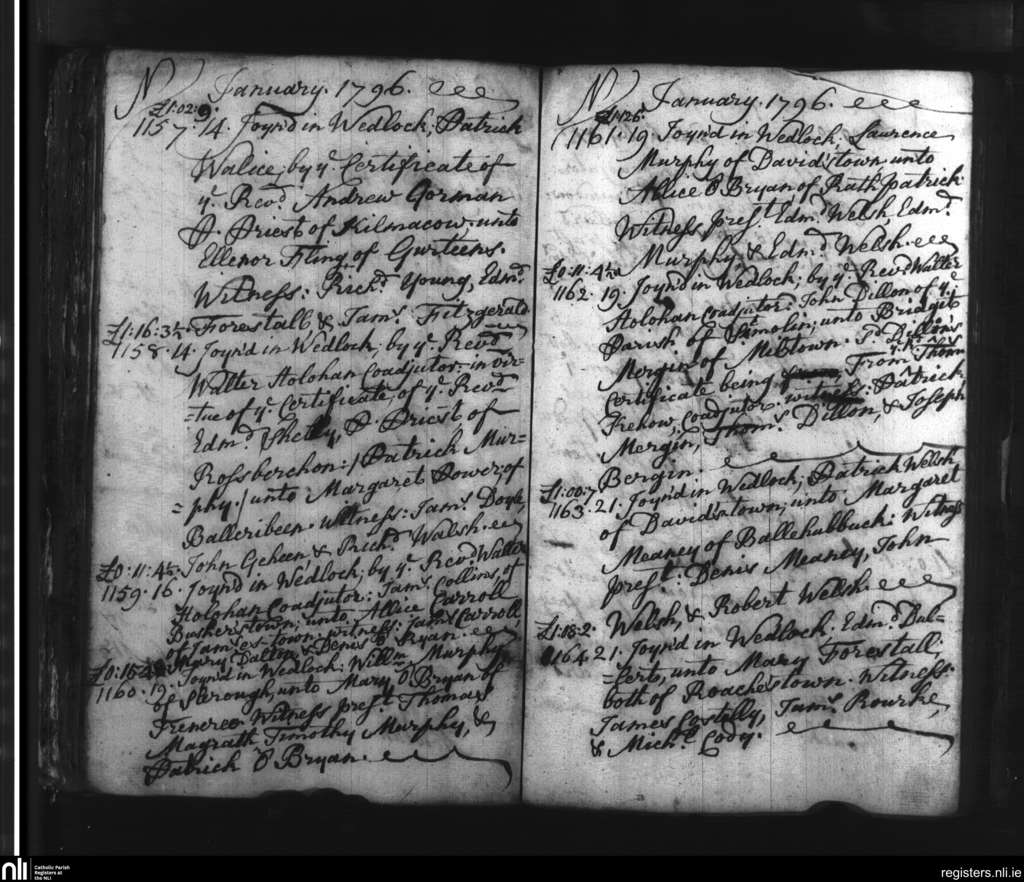 No January. 1796.
£1:02:9.
1157. 14. Joyn'd in Wedlock; Patrick
Walice, by ye. Certificate of
ye. Revd. Andrew Gorman
P. Priest of Kilmacow. unto
Ellenor Fling of Gurteens.
Witness: Richd. Young, Edmd.
Forestall & Jams. Fitzgerald
£1:16:3½
1158. 14. Joyn'd in Wedlock, by ye. Revd.
Walter Holohan Coadjutor: in vir=
=tue of ye. Certificate, of ye. Revd.
Edmd. Shelly, P. Priest of
Rossberchon: / Patrick Mur=
=phy: / unto Margaret Power, of
Ballcribeen. Witness: Jams. Doyle,
John Geheen & Richd. Walsh.
£0:11:4½
1159. 16. Joyn'd in Wedlock; by ye. Revd. Walter
Holohan Coadjutor: Jams. Collins of
Busherstown; unto Allice Carroll
of Jamestown. witness: Jams. Carroll,
Mary Dalton & Denis Ryan.
1160. 19. Joyn'd in Wedlock: Willm. Murphy
of unto Mary O Bryan of
Witness prest. Thomas
Magrath Timothy Murphy, &
Patrick O Bryan.
No January. 1796.
1161. 19. Joyn'd in Wedlock; Laurence
Murphy of Davidstown unto
Allice O Bryan of Rathpatrick
Witness prest. Edmd. Welsh, Edmd.
Murphy, & Edmd. Welsh.
£0:11:4½
1162. 19. Joyn'd in Wedlock; by ye. Revd. Walter
Holohan Coadjutor: John Dillon of ye.
Parish of St. molin; unto Bridgit
Mergin of Miltown. Pd. Dillons
Certificate being From ye. Rd. Thoms.
Coadjutor. witness: Patrick
Mergin, Thoms. Dillon, & Joseph
Bergin.
£1:00:7
1163. 21. Joyn'd in Wedlock; Patrick Welsh
of Davidstown; unto Margaret
Meaney of Ballehalbuck: Witness
prest: Denis Meaney, John
Welsh, & Robert Welsh.
£1:18:2.
1164. 21. Joyn'd in Wedlock. Edmd. Dul=
=ferto, unto Mary Forestall;
both of Roachestown. Witness:
James Costilly, Jams. Rourke,
& Michl. Cody.
nli
Catholic Parish
Registers at
the NLI
registers.nli.ie